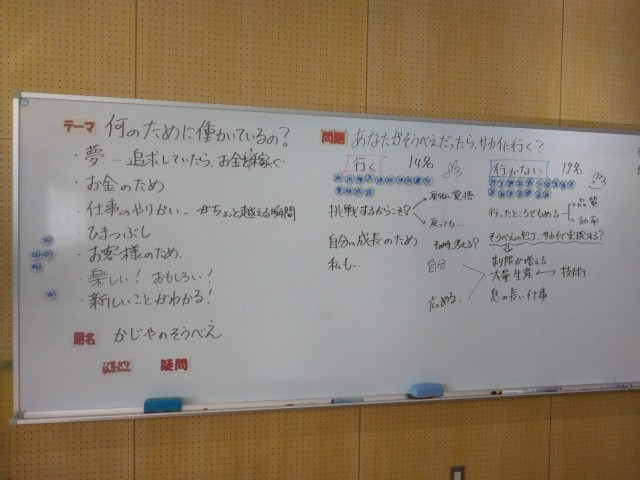 テーマ 何のために働いているの?
・夢 ― 追求していたら、お金を稼ぐ
・お金のため
・仕事のやりがい ― ちょっと越える瞬間
・ひまつぶし
・お客様のため
・楽しい! おもしろい!
・新しいことがわかる!
題名 かじやのそうべえ
疑問
問題 あなたがそうべえだったら、サカイに行く?
行く 14名
挑戦するからこそ?
覚悟
戻っても…
自分の成長のため
私も…
自分
広める
行かない 17名
行ったところでもめる
品質
効率
そうべえの サカイで実現する?
制限が増える
大量生産 ←→ 技術
息の長い仕事